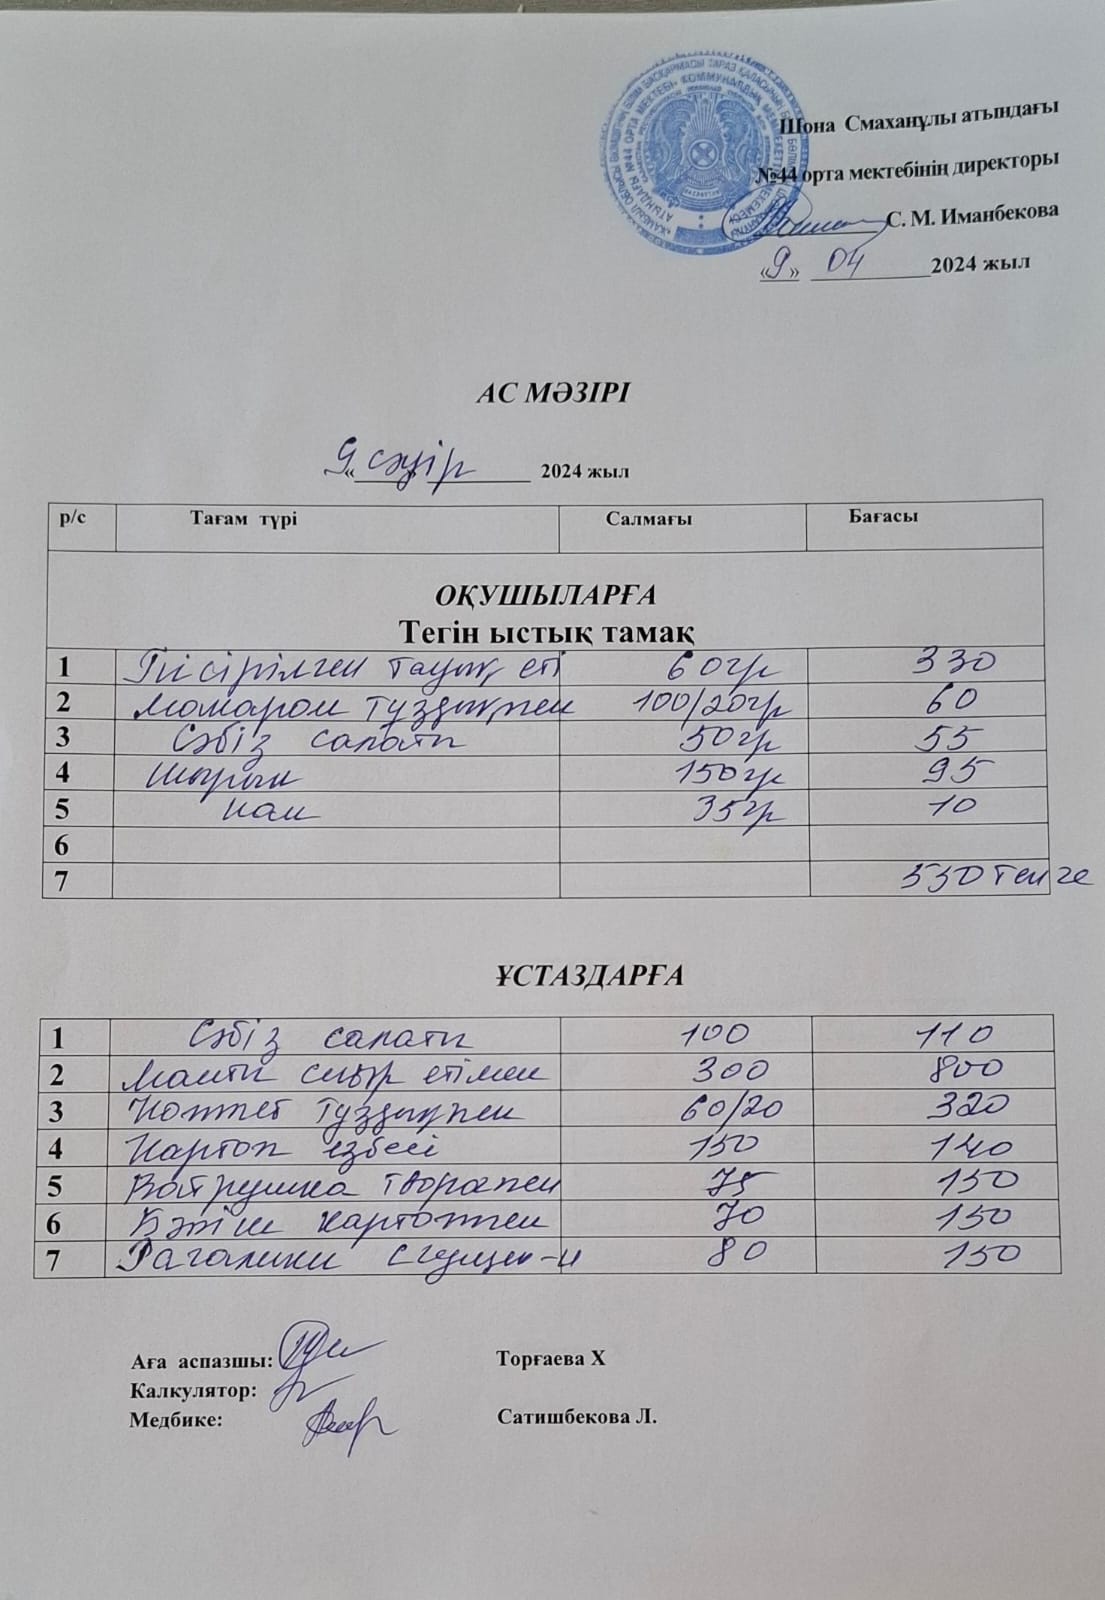 Шона Смаханұлы атындағы
№44 орта мектебінің директоры
С. М. Иманбекова
«9» 04 2024 жыл
АС МӘЗІРІ
«9 сәуір 2024 жыл
р/с Тағам түрі Салмағы Бағасы
ОҚУШЫЛАРҒА
Тегін ыстық тамақ
1 Пісірілген тауық еті 60гр 330
2 Макарон тұздықпен 100/20гр 60
3 Сәбіз салаты 50гр 55
4 Шырын 150гр 95
5 нан 35гр 10
6
7 550 тенге
ҰСТАЗДАРҒА
1 Сәбіз салаты 100 110
2 Манты сиыр етімен 300 800
3 Котлет тұздықпен 60/20 320
4 Картоп езбесі 150 140
5 Ватрушка творогпен 75 150
6 Бәліш картоппен 70 150
7 Рагалики сгущен-й 80 150
Аға аспазшы: Торғаева Х
Калкулятор:
Медбике: Сатишбекова Л.